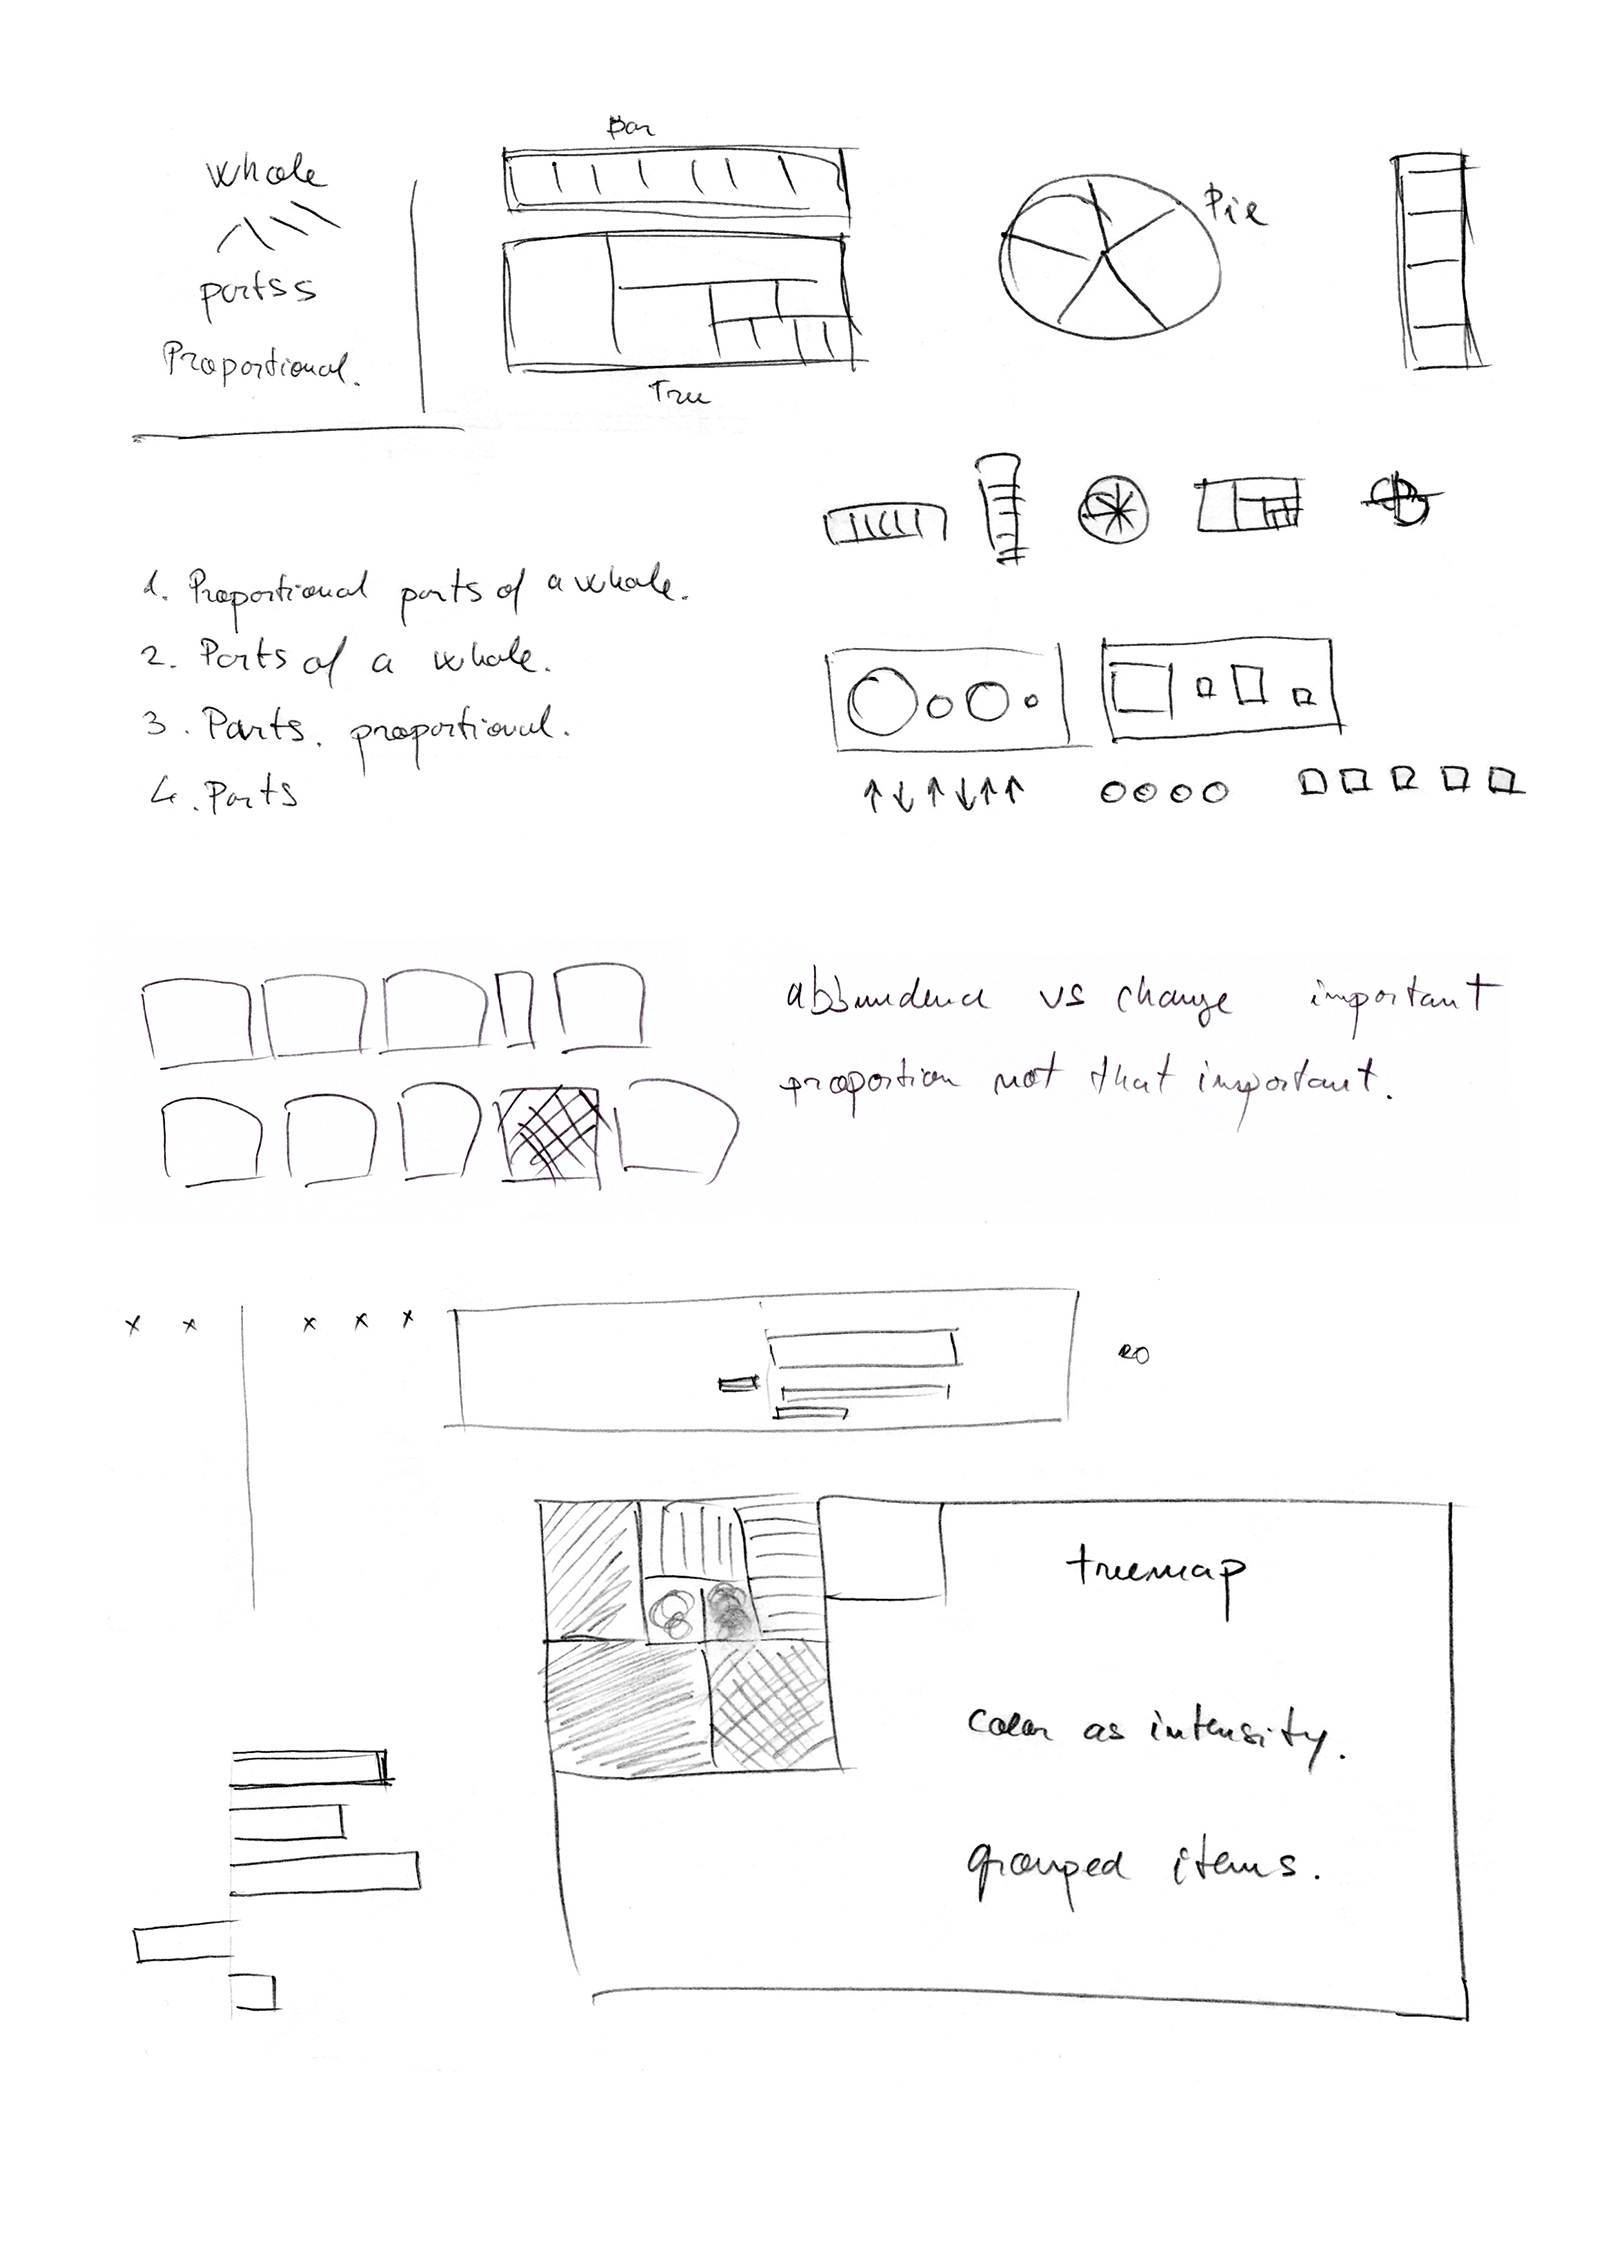 Bar
whole
Pie
partss
Proportional.
Tree
1. Proportional parts of a whole.
2. Parts of a whole.
3. Parts. proportional.
4. Parts
abbundence vs change important
proportion not that important.
x x x x x
treemap
color as intensity.
grouped items.